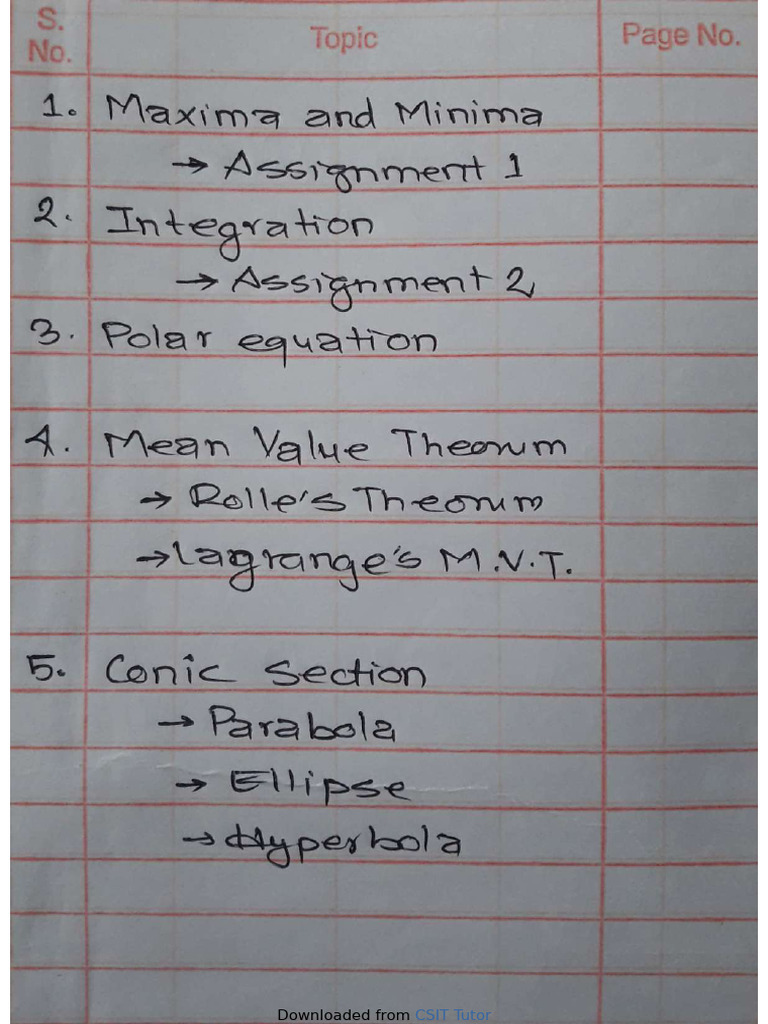 S. No. Topic Page No.
1. Maxima and Minima
→ Assignment 1
2. Integration
→ Assignment 2
3. Polar equation
4. Mean Value Theorum
→ Rolle's Theorum
→ Lagrange's M.V.T.
5. Conic Section
→ Parabola
→ Ellipse
→ Hyperbola
Downloaded from CSIT Tutor